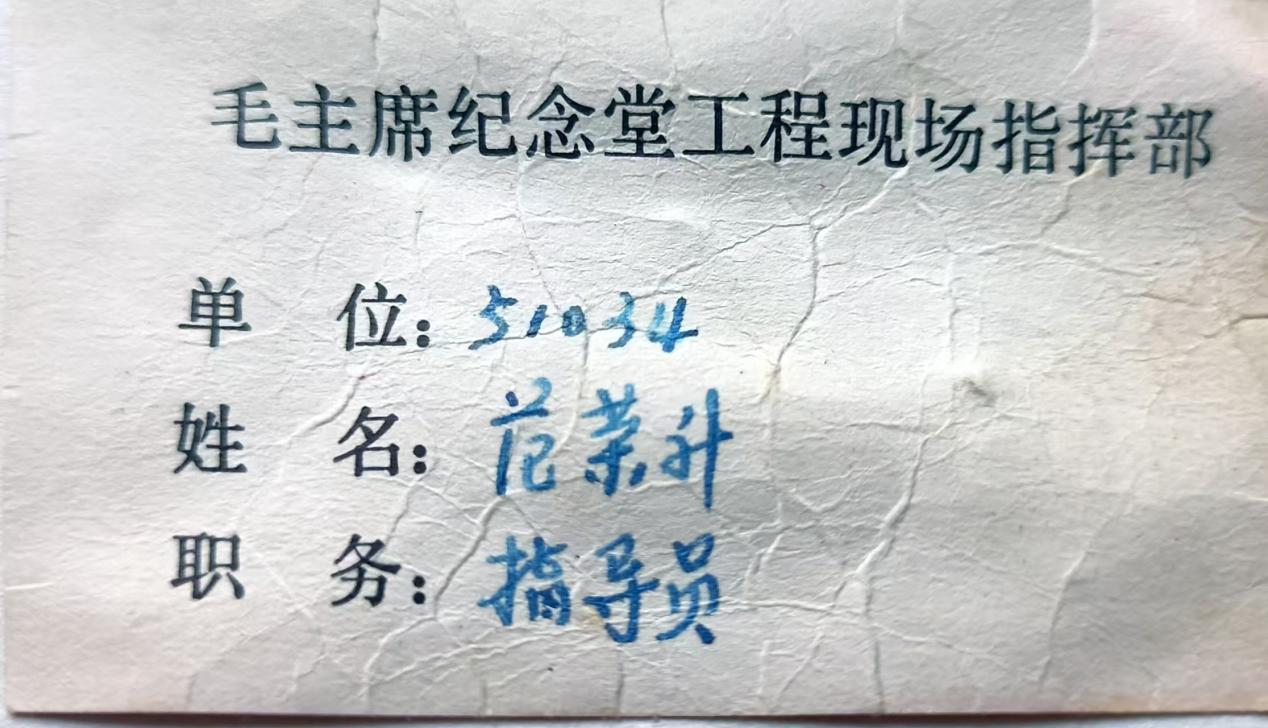 毛主席纪念堂工程现场指挥部
单 位：51034
姓 名：范荣升
职 务：指导员